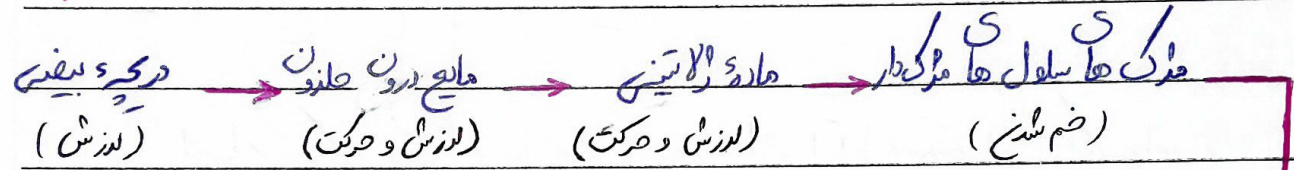 دریچهٔ بیضی → مایع درون حلزون → مادهٔ ژلاتینی → مژک های سلول های مژک دار
(لرزش) (لرزش و حرکت) (لرزش و حرکت) (خم شدن)